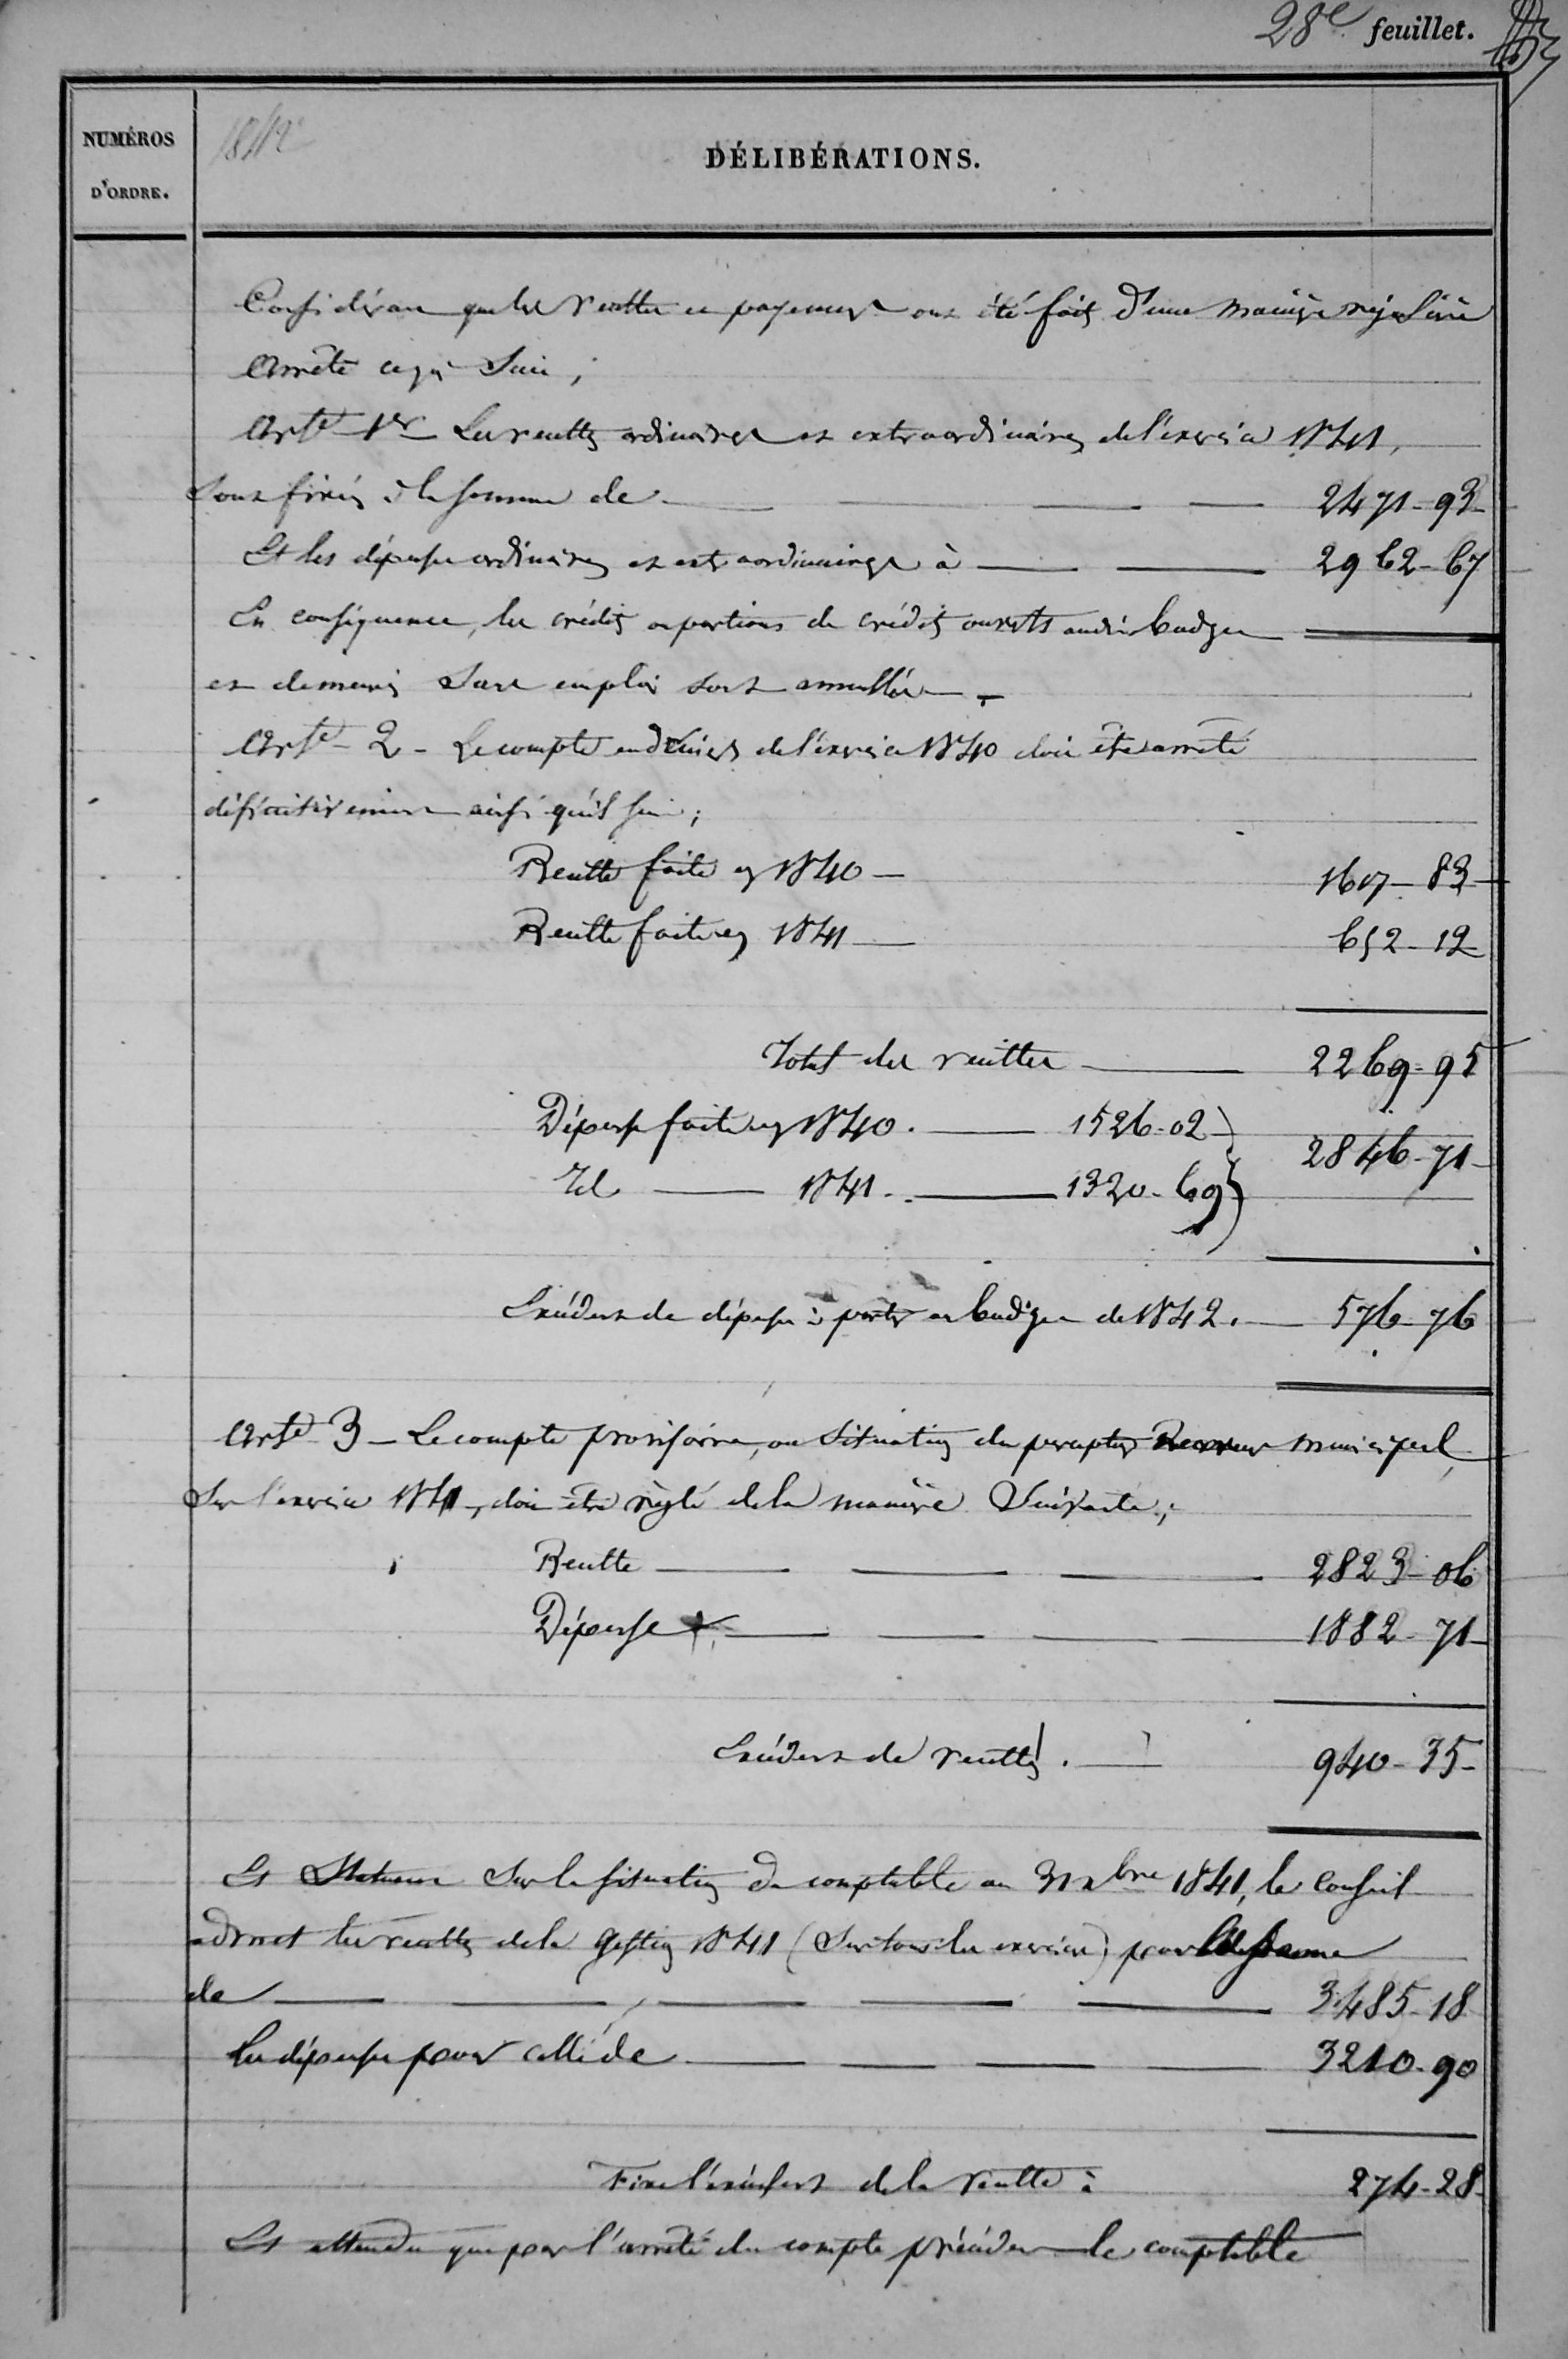 28e feuillet.
NUMÉROS
D'ORDRE.
1842
DÉLIBÉRATIONS.
Considérant que les recettes et payement ont été faits d'une manière régulière
Arrête ce qui suit ;
Arte 1er Les recettes ordinaires et extraordinaires de l'exercice 1841,
sont fixées à la somme de 2471-93
Et les dépenses ordinaires et extraordinaires à 2962-67
En conséquence, les crédits ou portions de crédits ouverts audit budget
et demeurés sans emploi sont annullés.
Arte 2 - Le compte en deniers de l'exercice 1840 doit être arrêté
définitivement ainsi qu'il suit ;
Recette faite en 1840 1617-83
Recette faite en 1841 652-12
Total des recettes 2269-95
Dépense faite en 1840. 1526-02
2846-71
Id 1841. 1320-69
Excédent de dépenses à porter au budget de 1842. 576-76
Arte 3 - Le compte provisoire, ou situation du percepteur Receveur municipal,
sur l'exercice 1841, doit être réglé de la manière suivante ;
Recette 2823-06
Dépense 1882-71
Excédent de recettes. 940-35
Et statuant sur la situation du comptable au 31 xbre 1841, le Conseil
admet les recettes de la gestion 1841 (sur tous les exercices) pour la somme
de 3485-18
Les dépenses pour celle de 3210-90
Fixe l'excédent de la recette à 274-28
Et attendu que par l'arrêté du compte précédent le comptable